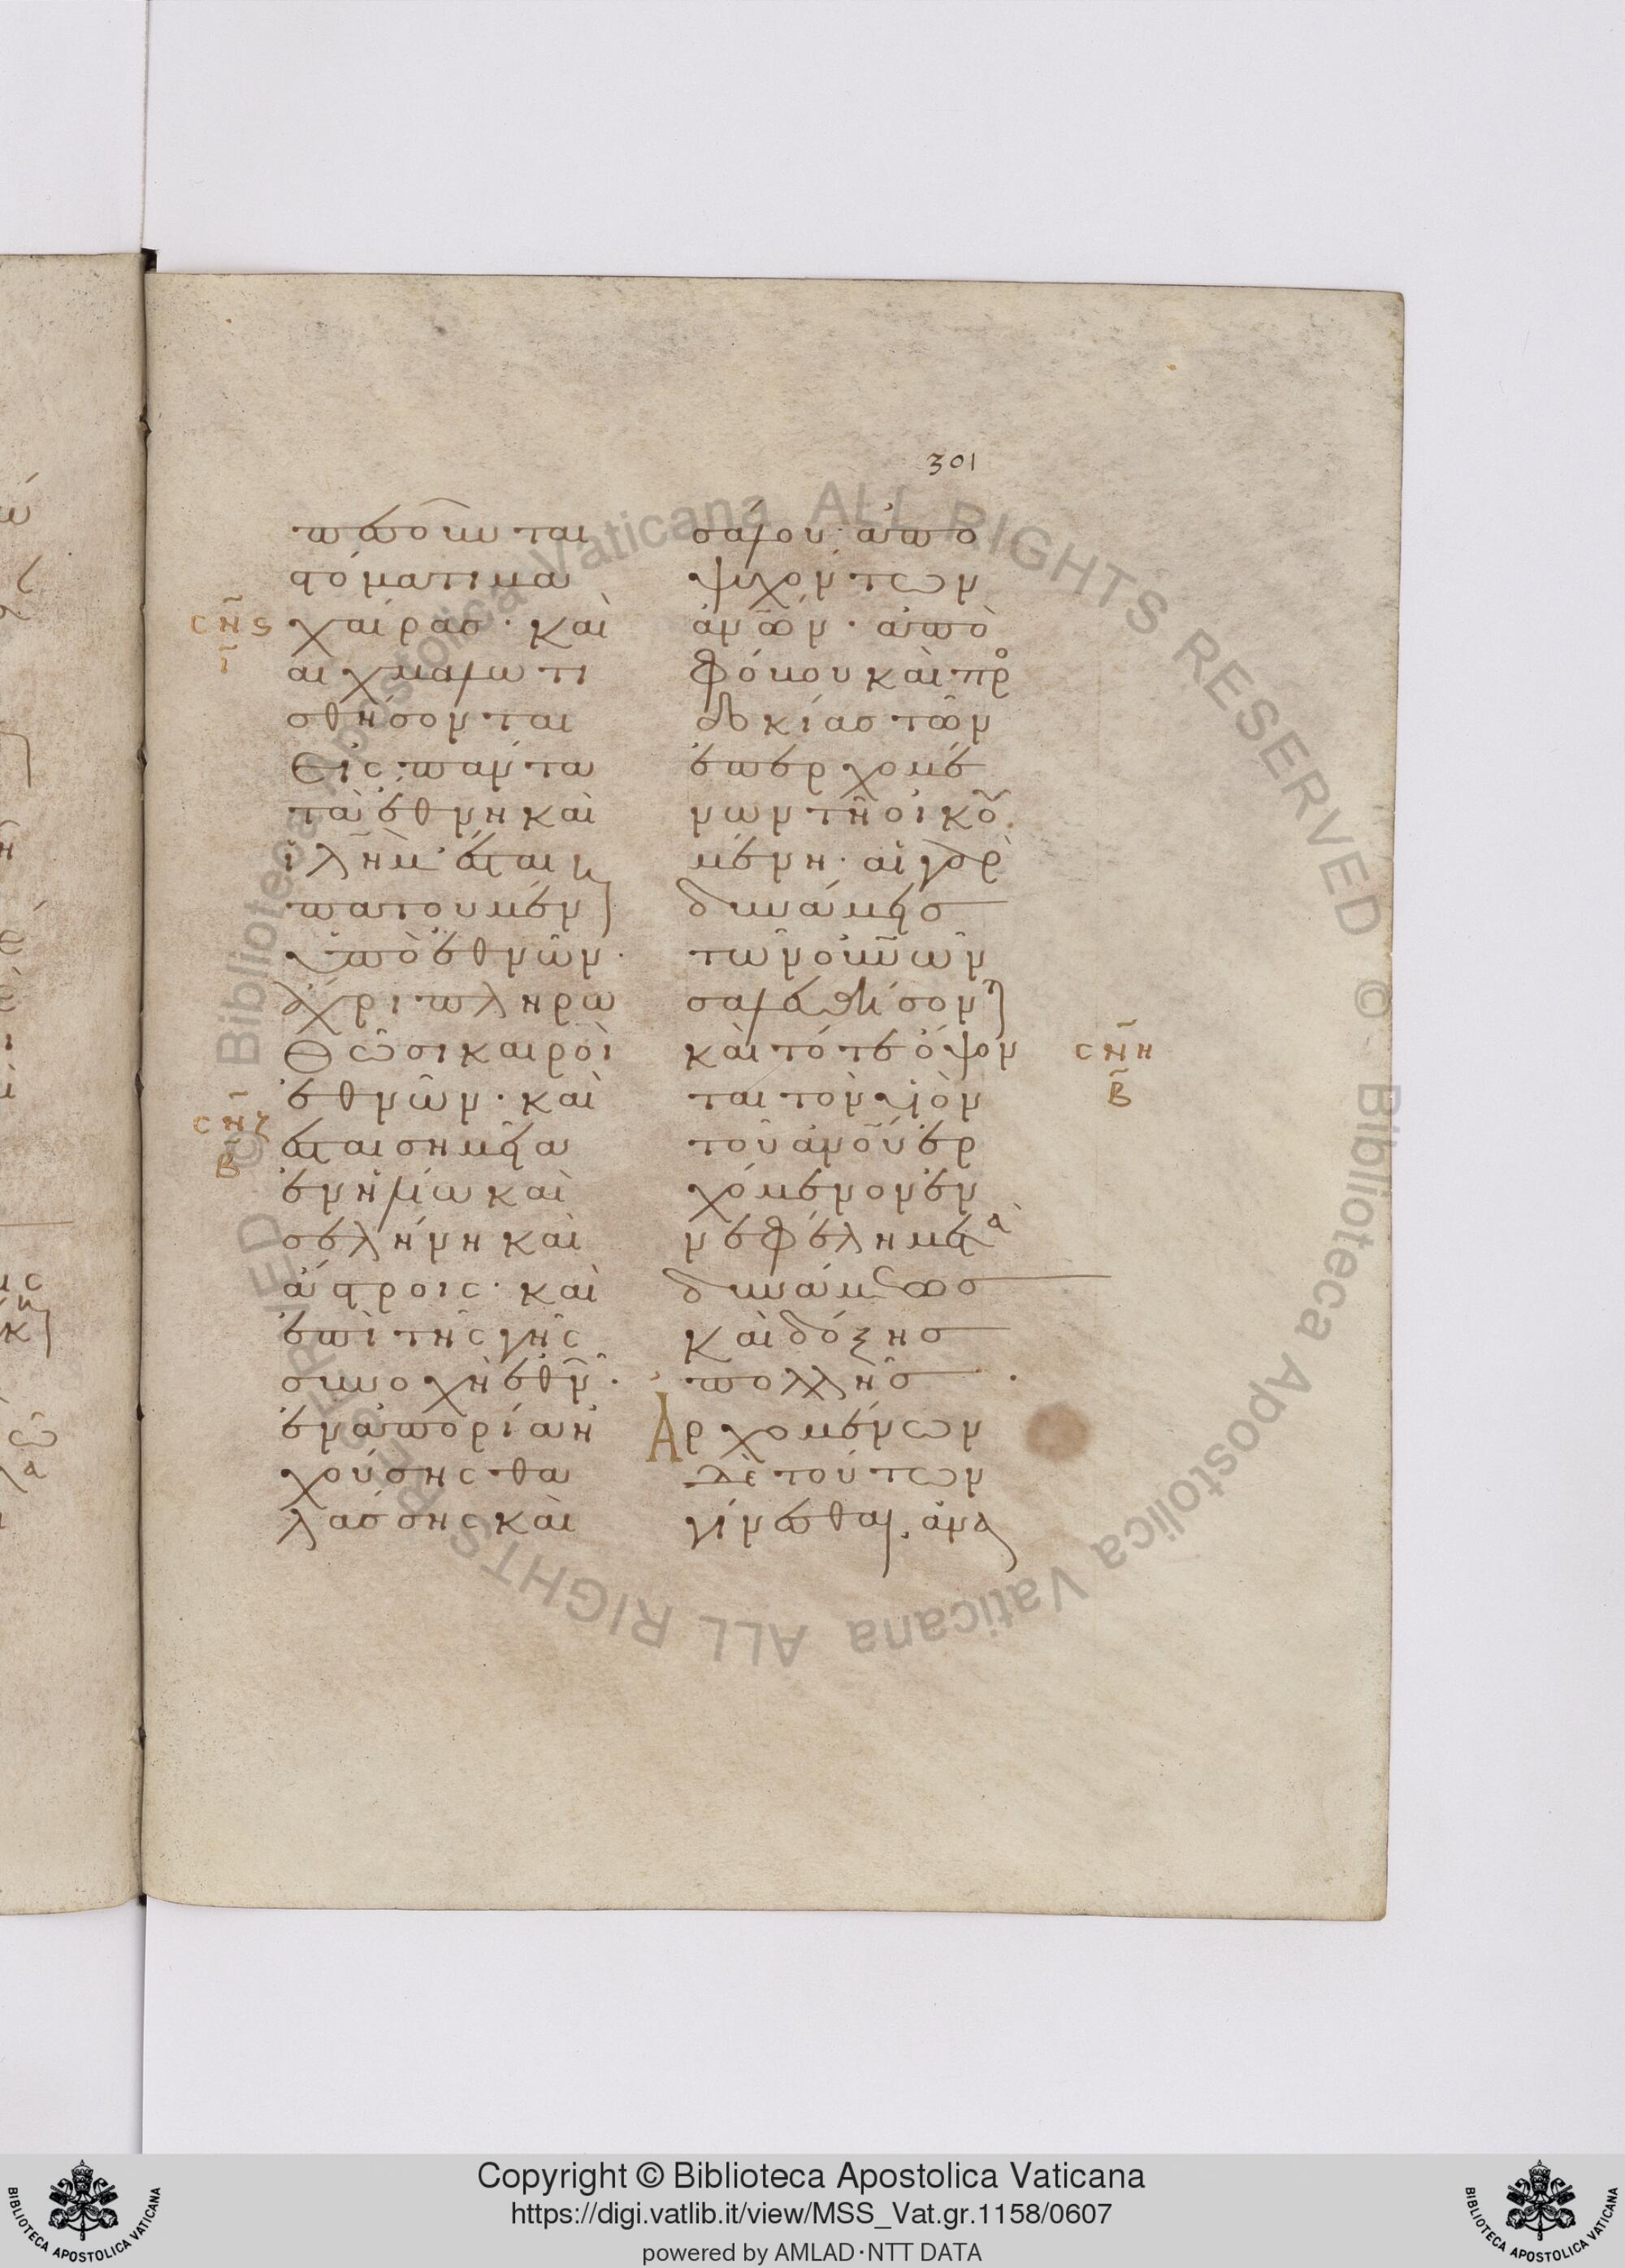 301
πεσοῦνται
στόματι μα
χαίρας· καὶ
αἰχμαλωτι
σθήσονται
εἰς πάντα
τὰ ἔθνη καὶ
ἱλῆμ ἔσται
πατουμένη
ὑπὸ ἐθνῶν·
ἄχρι πληρω
θῶσι καιροὶ
ἐθνῶν· καὶ
ἔσται σημεῖα
ἐν ἡλίω καὶ
σελήνη καὶ
ἄστροις· καὶ
ἐπὶ τῆς γῆς
συνοχὴ ἐθνῶν·
ἐν ἀπορία ἠ
χούσης θα
λάσσης καὶ
σάλου· ἀπο
ψυχόντων
ἀνῶν· ἀπὸ
φόβου καὶ προ
δοκίας τῶν
ἐπερχομέ
νων τῆ οἰκου
μένη· αἱ γὰρ
δυνάμεις
τῶν οὐνῶν
σαλευθήσονται
καὶ τότε ὄψον
ται τὸν υἱὸν
τοῦ ἀνοῦ ἐρ
χόμενον ἐν
νεφέλη μετὰ
δυνάμεως
καὶ δόξης
πολλῆς·
Ἀρχομένων
δὲ τούτων
γίνεσθαι, ἀνα
σνς
ι
σνζ
β
σνη
β
Copyright © Biblioteca Apostolica Vaticana
https://digi.vatlib.it/view/MSS_Vat.gr.1158/0607
powered by AMLAD·NTT DATA
BIBLIOTECA APOSTOLICA VATICANA
BIBLIOTECA APOSTOLICA VATICANA
© Biblioteca Apostolica Vaticana ALL RIGHTS RESERVED © Biblioteca Apostolica Vaticana ALL RIGHTS RESERVED